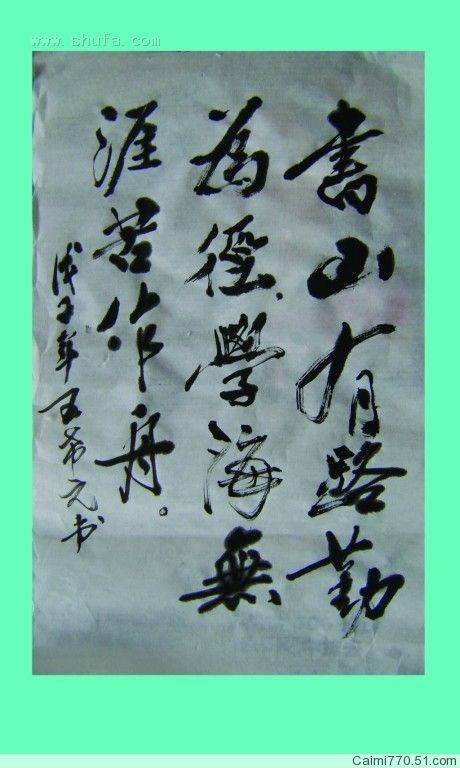 www.shufa.com
書山有路勤
為徑學海無
涯苦作舟。
戊子年王希元书
Caimi770.51.com